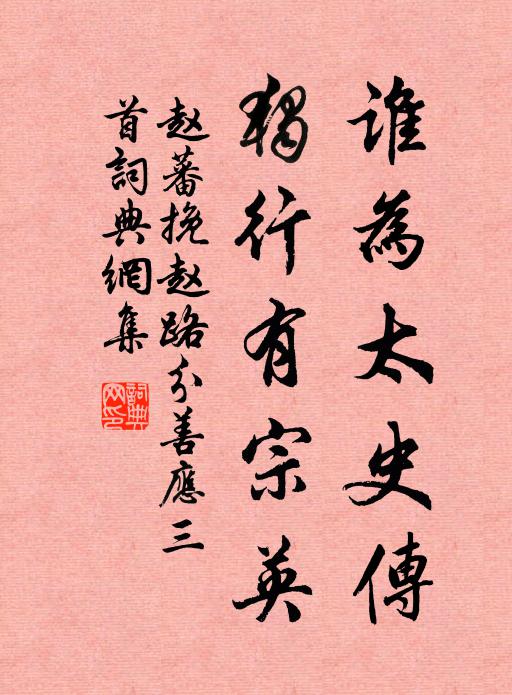 誰為太史傳
獨行有宗英
赵蕃挽赵路分善應三
首詞典網集
詞典網印